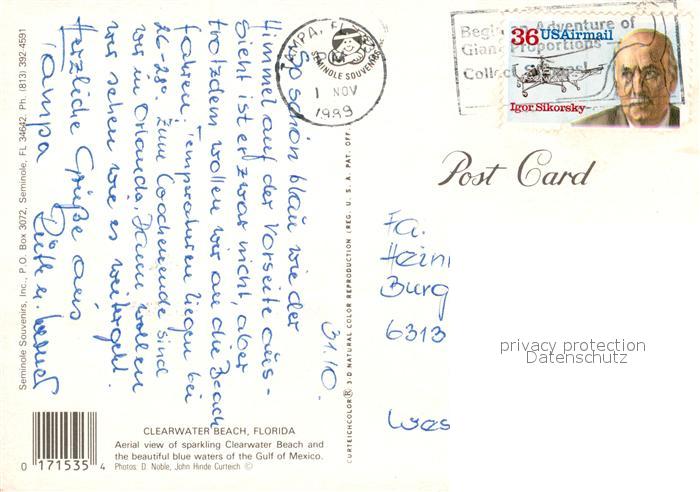 31.10.
So schön blau wie der
Himmel auf der Vorseite aus-
sieht ist er zwar nicht, aber
trotzdem wollen wir an die Beach
fahren! Temperaturen liegen bei
26-28°. Zum Wochenende sind
wir in Orlando. Dann wollen
wir sehen wie es weitergeht.
Herzliche Grüße aus
Tampa
u.
Seminole Souvenirs, Inc., P.O. Box 3072, Seminole, FL 34642, Ph. (813) 392-4591
0 171535 4
CLEARWATER BEACH, FLORIDA
Aerial view of sparkling Clearwater Beach and
the beautiful blue waters of the Gulf of Mexico.
Photos: D. Noble, John Hinde Curteich ©
CURTEICHCOLOR® 3-D NATURAL COLOR REPRODUCTION (REG. U. S. A. PAT. OFF.
TAMPA, FL
SEMINOLE SOUVENIRS
1 NOV
1989
Begin an Adventure of
Giant Proportions
Collect Stamps!
36 USAirmail
Igor Sikorsky
Post Card
Fa.
Hein
Burg
6313
Wes
privacy protection
Datenschutz